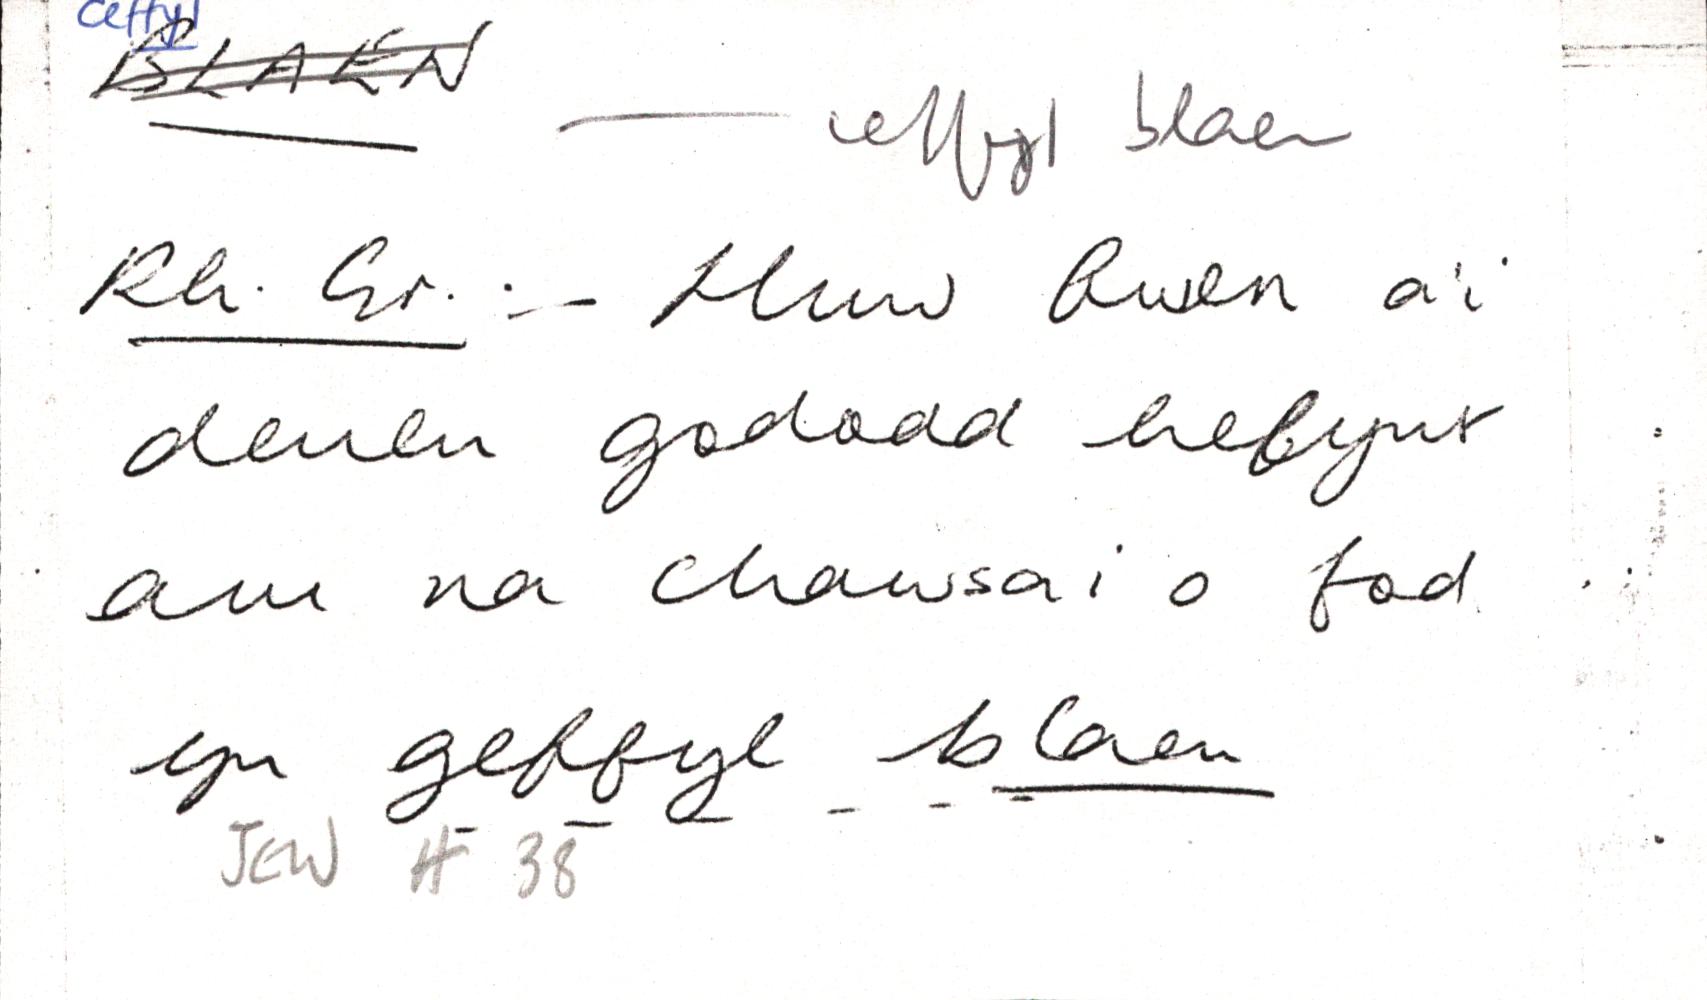 ceffyl
BLAEN
— ceffyl blaen
Rh. Gr. :— Huw Owen a'i
denen gododd helynt
am na chawsai o fod
yn geffyl blaen
JEW H 38